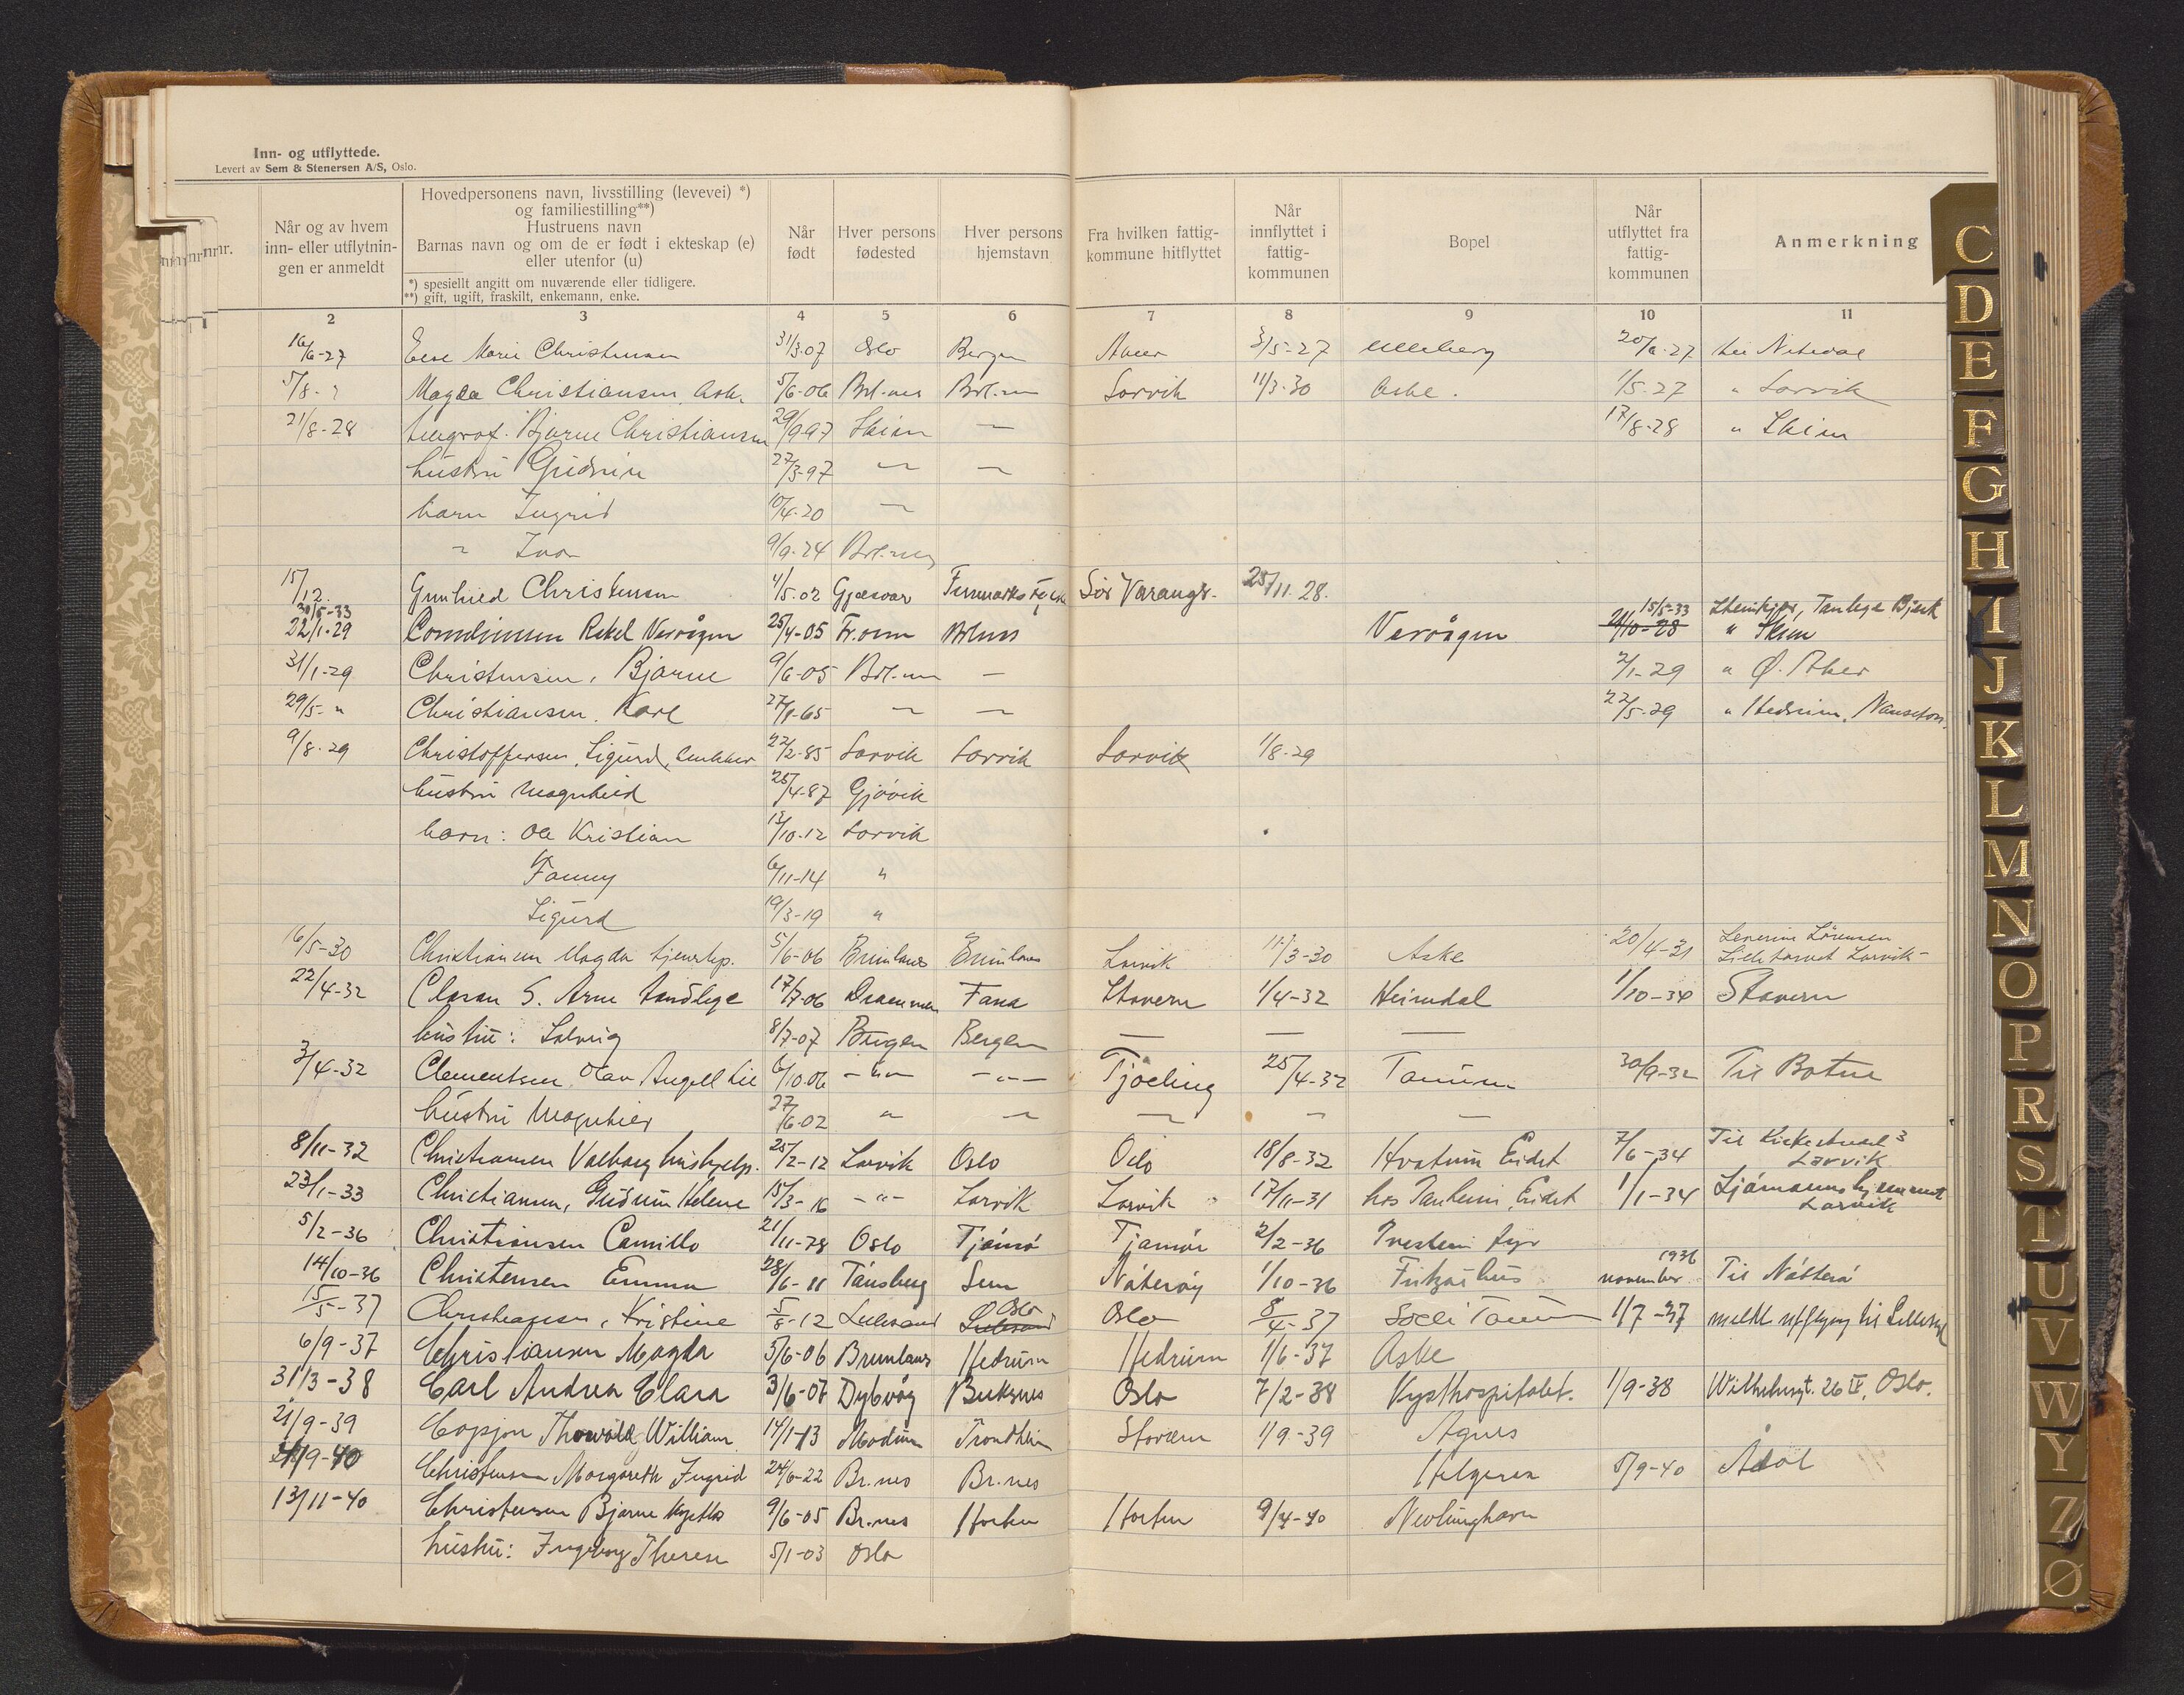 Inn- og utflyttede.
Levert av Sem & Stenersen A/S, Oslo.
nr. Når og av hvem inn- eller utflytnin-gen er anmeldt
Hovedpersonens navn, livsstilling (levevei) *) og familiestilling**) Hustruens navn Barnas navn og om de er født i ekteskap (e) eller utenfor (u)
*) spesiellt angitt om nuværende eller tidligere.
**) gift, ugift, fraskilt, enkemann, enke.
Når født
Hver persons fødested
Hver persons hjemstavn
Fra hvilken fattig-kommune hitflyttet
Når innflyttet i fattig-kommunen
Bopel
Når utflyttet fra fattig-kommunen
Anmerkning
1 2 3 4 5 6 7 8 9 10 11
16/6-27 Else Marie Christensen 31/3.07 Oslo Bergen Aker 3/5-27 Ulleberg 27 til Nitedal
5/8 Magda Christiansen Aske 5/6-06 Brl.nes Brl.nes Larvik 11/3-30 Aske. 1/5-27 " Larvik
21/8-28 Bjarne Christiansen 29/9-97 Skien — 17/8-28 " Skien
hustru Gudrun 27/3-97 — —
barn Ingrid 10/4-20 —
" Ivar 9/9-24 Brl.nes
15/12. Gunhild Christensen 4/5-02 Gjæsvær Finnmarks Sör Varanger 25/11.28.
30/5-33 15/5-33 Steinkjer, Tanlege Bjerk
22/1-29 Corneliussen Rakel Nevrågen 25/4-05 Fr.vern Brlnes Nevrågen 21/10-28 " Skien
31/1-29 Christensen, Bjarne 9/6-05 Brl.nes — 2/1-29 " Ø. Aker
29/5-" Christiansen, Karl 27/8-65 — — 22/5-29 " Hedrum, Nanset
9/8-29 Christoffersen, Sigurd, snekker 22/2-85 Larvik Larvik Larvik 1/8-29
hustru Magnhild 25/4-87 Gjövik
barn: Ole Kristian 13/10-12 Larvik
Fanny 6/11-14 "
Sigurd 19/3-19 "
16/5-30 Christiansen Magda tjenestep. 5/6-06 Brunlanes Brunlanes Larvik 11/3-30 Aske 20/4-31 Severin Lörensen
Lilletorvet Larvik-
22/4-32 Clasen S. Arne tandlege 17/7-06 Drammen Fana Stavern 1/4-32 Heimdal 1/10-34 Stavern
hustru: Solveig 8/7-07 Bergen Bergen — — —
3/4-32 Clementsen, Olav Angell 6/10.06 -"- -"- Tjøeling 25/4-32 Tanum 30/9-32 Til Botne
hustru Magnhild 27/6-02 " — — — —
8/11-32 Christiansen Valborg hushjelp. 25/2-12 Larvik Oslo Oslo 18/8-32 Hvatum Eidet 7/6-34 Til Kirkestredet 3
Larvik
23/1-33 Christiansen, Gudrun Helene 15/3-16 -"- Larvik Larvik 17/11-31 hos Paulsen, Eidet 1/1-34 Sjömannshjemmet
Larvik
5/2-36 Christiansen Camillo 21/11-78 Oslo Tjömö Tjömö 2/2-36 Tvistein fyr
14/10-36 Christensen Emma 28/6-11 Tönsberg Sem Nöteröy 1/10-36 Fritzøehus november 1936 Til Nötterö
15/5-37 Christiansen, Kristine 5/8-12 Lillesand Oslo Lillesand Oslo 8/4-37 Solli Tanum 1/7-37 meldt utflyttning til Lillesand
6/9-37 Christiansen Magda 5/6-06 Brunlanes Hedrum Hedrum 1/6-37 Aske
31/3-38 Carl Andrea Clara 3/6-07 Dybvåg Buksnes Oslo 7/2-38 Kysthospitalet. 1/9-38 Wilhelmsgt. 26 IV, Oslo.
21/9-39 Copjon Thorvald William 14/1-13 Modum Trondheim Stavern 1/9-39 Agnes
9-40 Christensen Margareth Ingrid 24/6-22 Br.nes Br.nes Helgeroa 5/9-40 Ådal
13/11-40 Christensen Bjarne 9/6-05 Br.nes Horten Horten 9/4-40 Nevlunghavn
hustru: Ingeborg Therese 5/1-03 Oslo
C
D
E
F
G
H
I
J
K
L
M
N
O
P
R
S
T
U
V
W
Y
Z
Ø